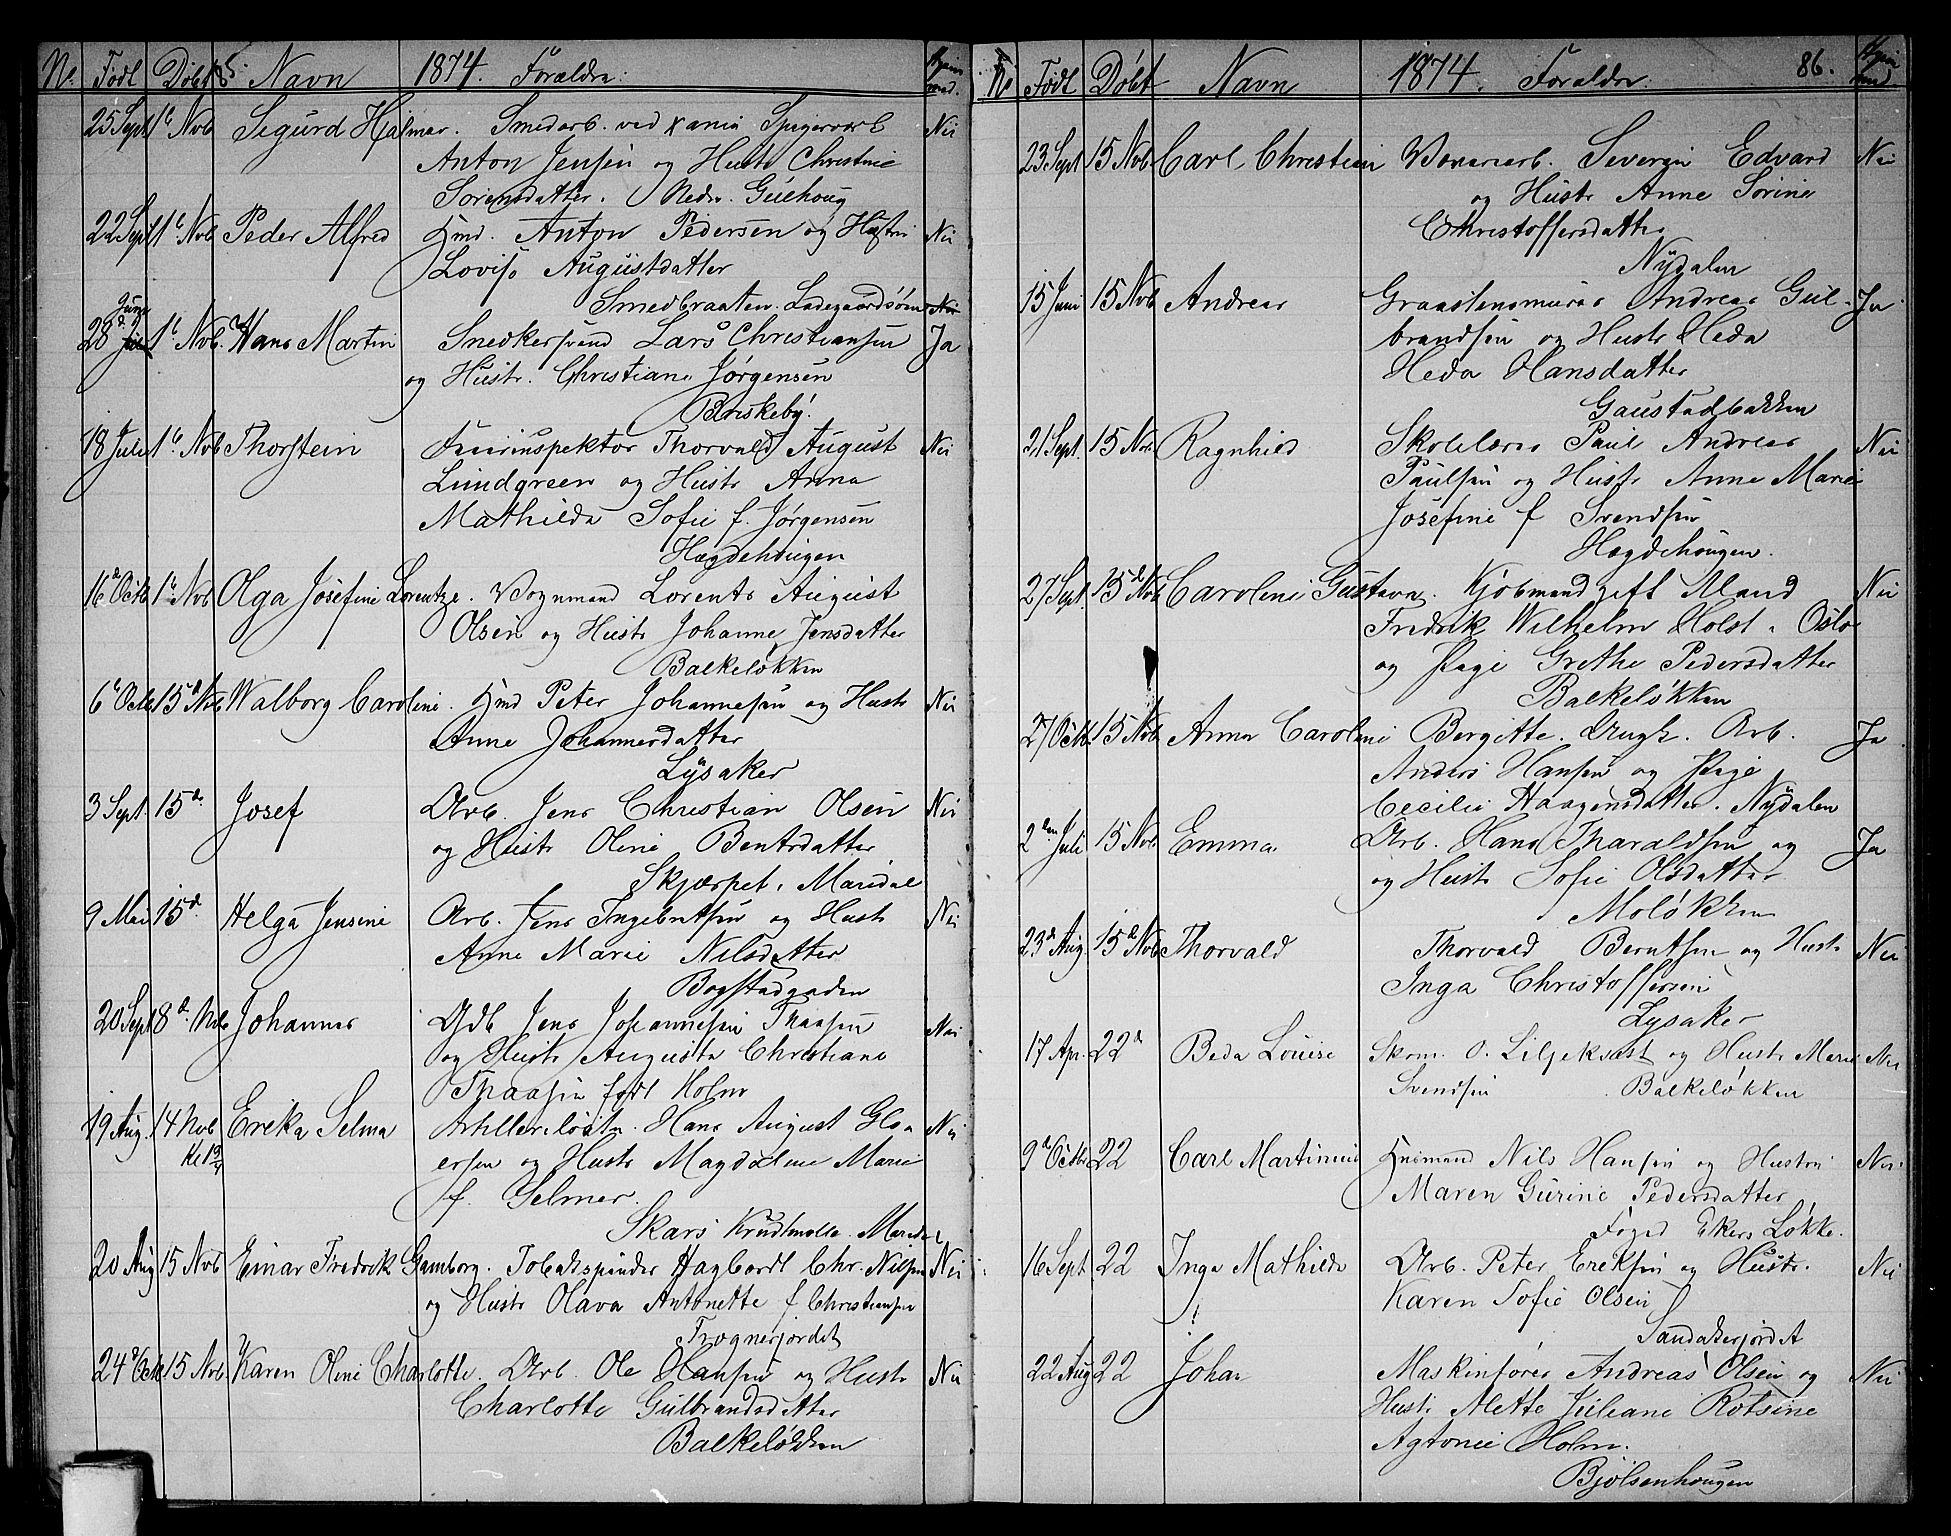 N. Født Døbt Navn 1874. Forældre: Hjem med.
25 Sept 1 Nvb Sigurd Hjalmar. Smedarb. ved Xania Spigerværk Nei
Anton Jensen og Hustr Christine
Sorensdatter. Nedr. Guehoug
22 Sept 1 Nvb Peder Alfred Hmd. Anton Pedersen og Hustru Nei
Lovise Augustdatter
Smedbraaten. Ladegaardsøen Nei
28 Juni 1 Nvb. Hans Martin Snedkersvend Lars Christiansen Ja
og Hustr. Christiane Jørgensen
Briskeby.
18 Juli 1 Nvb Thorstein Thorvald August Nei
Lundgreen og Hustr Anna
Mathilda Sofie f. Jørgensen
Hægdehougen
16 Octb 1 Nvb Olga Josefine Lorentze. Vognmand Lorents August
Olsen og Hustr Johanne Jensdatter
Balkeløkken
6 Octb 15 Nvb Walborg Caroline. Hmd Peter Johannesen og Hustr Nei
Anne Johannesdatter
Lysaker
3 Sept. 15d. Josef Arb. Jens Christian Olsen Nei
og Hustr Oline Bentsdatter
Skjærpet i Maridal
9 Mai 15d. Helga Jensine Arb. Jens Ingebretsen og Hustr Nei
Anne Marie Nilsdatter
Bogstadgaden
20 Sept 8d. Nvb Johannes Gdb Jens Johannesen Thaasen Nei
og Hustr Augusta Christiane
Thaasen født Holm
19 Aug. 14 Nvb Erika Selma Hans August Nei
ersen og Hustr Magdalene Marie
f. Selmer.
Skars Krudtmølle. Maridal
20 Aug 15 Nvb Einar Fredrik Gamborg. Tobakspinder Hagbardt Chr. Nilsen Nei
og Hustr Olava Antonette f Christiansen
Frognerjordet
24 Octb 15 Nvb. Karen Oline Charlotte. Arb. Ole Hansen og Hustr Nei
Charlotte Gulbrandsdatter
Balkeløkken
N Født Døbt Navn 1874. Forældre. 86. Hjem med.
23 Sept 15 Nvb Carl Christian Severin Edvard Nei
og Hustr Anne Sorine
Christoffersdatter
Nydalen
15 Juni 15 Nvb Andreas Graastensmurer Andreas Gul- Ja
brandsen og Hustr Heda
Heda Hansdatter
Gaustadbakken
21 Sept. 15 Nvb Ragnhild Skolelærer Paul Andreas Nei
Paulsen og Hustr Anne Marie
Josefine f Svendsen
Hægdehougen.
27 Sept. 15d Nvb Caroline Gustava. Kjøbmand gift Mand Nei
Fredrik Wilhelm Holst i Oslo
og Pige Grethe Pedersdatter
Balkeløkken
27 Octb 15 Nvb Anna Caroline Bergitte. Ungk. Arb. Ja
Anders Hansen og Pige
Cecilie Haagensdatter. Nydalen
2den Juli 15 Nvb Emma Arb. Hans Tharaldsen og Ja
og Hustr Sofie Olsdatter
Moløkken
23d Aug. 15d Nvb Thorvald Thorvald Berntsen og Hustr Nei
Inga Christoffersen
Lysaker
17 Apr. 22d Beda Louise Skom. O. Liljekvist og Hustr Marie Nei
Svendsen Balkeløkken
9d Octb 22 Carl Martinius Husmand Nils Hansen og Hustru Nei.
Maren Gurine Pedersdatter
Foged Ekers Løkke.
16 Sept 22 Inga Mathilde Arb. Peter Eriksen og Hustr. Nei
Karen Sofie Olsen
Sandakerjordet
22 Aug 22 Johan Maskinfører Andreas Olsen og Nei
Hustr Mette Juliane Rotsine
Agtonie Holm.
Bjølsenhougen